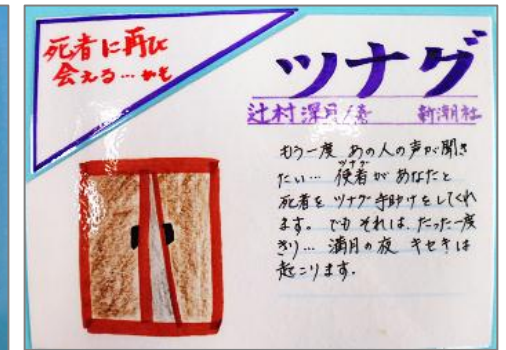 死者に再び
会える…かも
ツナグ
辻村深月/著 新潮社
もう一度 あの人の声が聞き
たい… 使者があなたと
ツナグ
死者を ツナグ手助けをしてくれ
ます。でも それは、たった一度
きり… 満月の夜 キセキは
起こります.